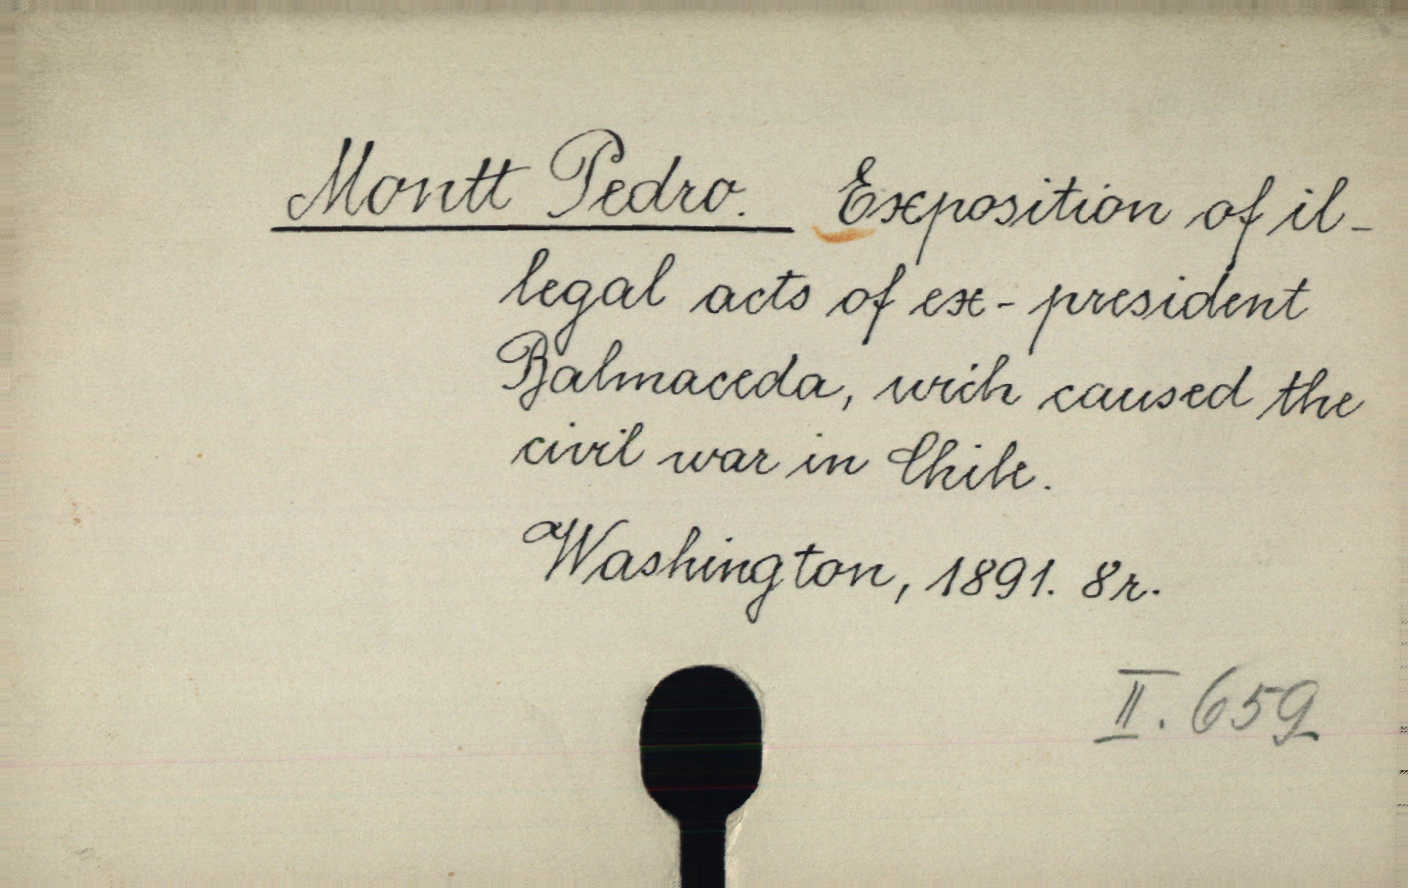 Montt Pedro. Exposition of il-
legal acts of ex-president
Balmaceda, wich caused the
civil war in Chile.
Washington, 1891. 8r.
II. 659